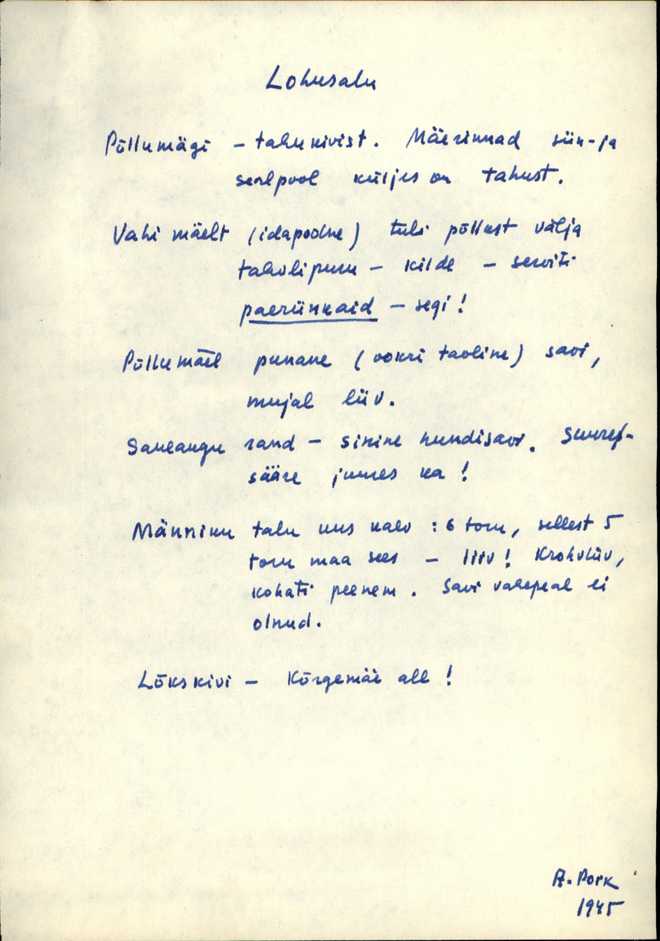 Lohusalu
Põllumägi – tahukivist. Mäerinnad siin- ja
sealpool küljes on tahust.
Vahi mäelt (idapoolne) tuli põllust välja
tahulipuru – kilde – serviti
paerünkaid – segi!
Põllumäel punane (ookri taoline) savi,
mujal liiv.
rand – sinine hundisavi. Suurel-
sääre juures ka!
Männiku talu uus kaev : 6 toru, sellest 5
toru maa sees – liiv! Krohvliiv,
kohati peenem. Savi vahepeal ei
olnud.
Lõkskivi – Kõrgemäe all!
A. Pork
1945